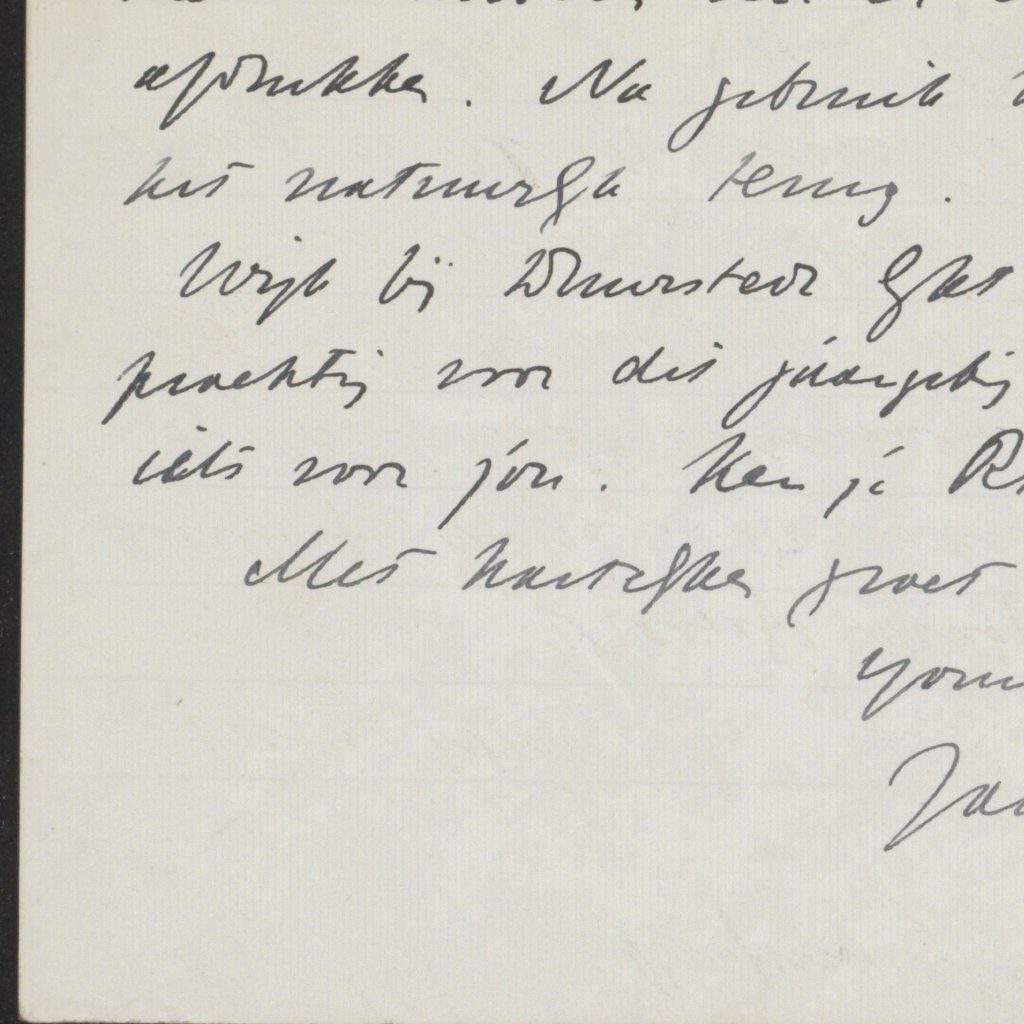 afdrukken. Na gebruik
het natuurlijk terug.
Wijk bij Duurstede lijkt
prachtig voor dit jaargetij
iets voor jou. Ken je
Met hartelijke groet